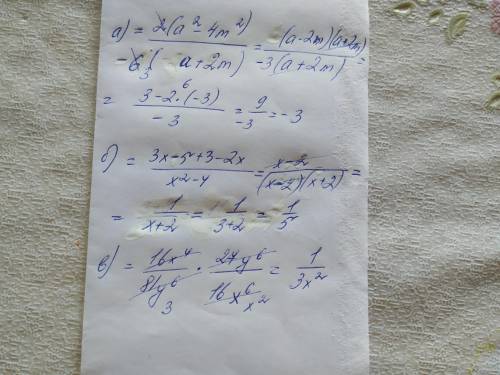 а) = 2(a² - 4m²) / -6(a + 2m) = (a - 2m)(a + 2m) / -3(a + 2m) =
= 3 - 2 · (-3) / -3 = 9 / -3 = -3
б) = 3x - 5 + 3 - 2x / x² - 4 = x - 2 / (x - 2)(x + 2) =
= 1 / x + 2 = 1 / 3 + 2 = 1 / 5
в) = 16x⁴ / 81y⁶ · 27y⁶ / 16x⁶ = 1 / 3x²